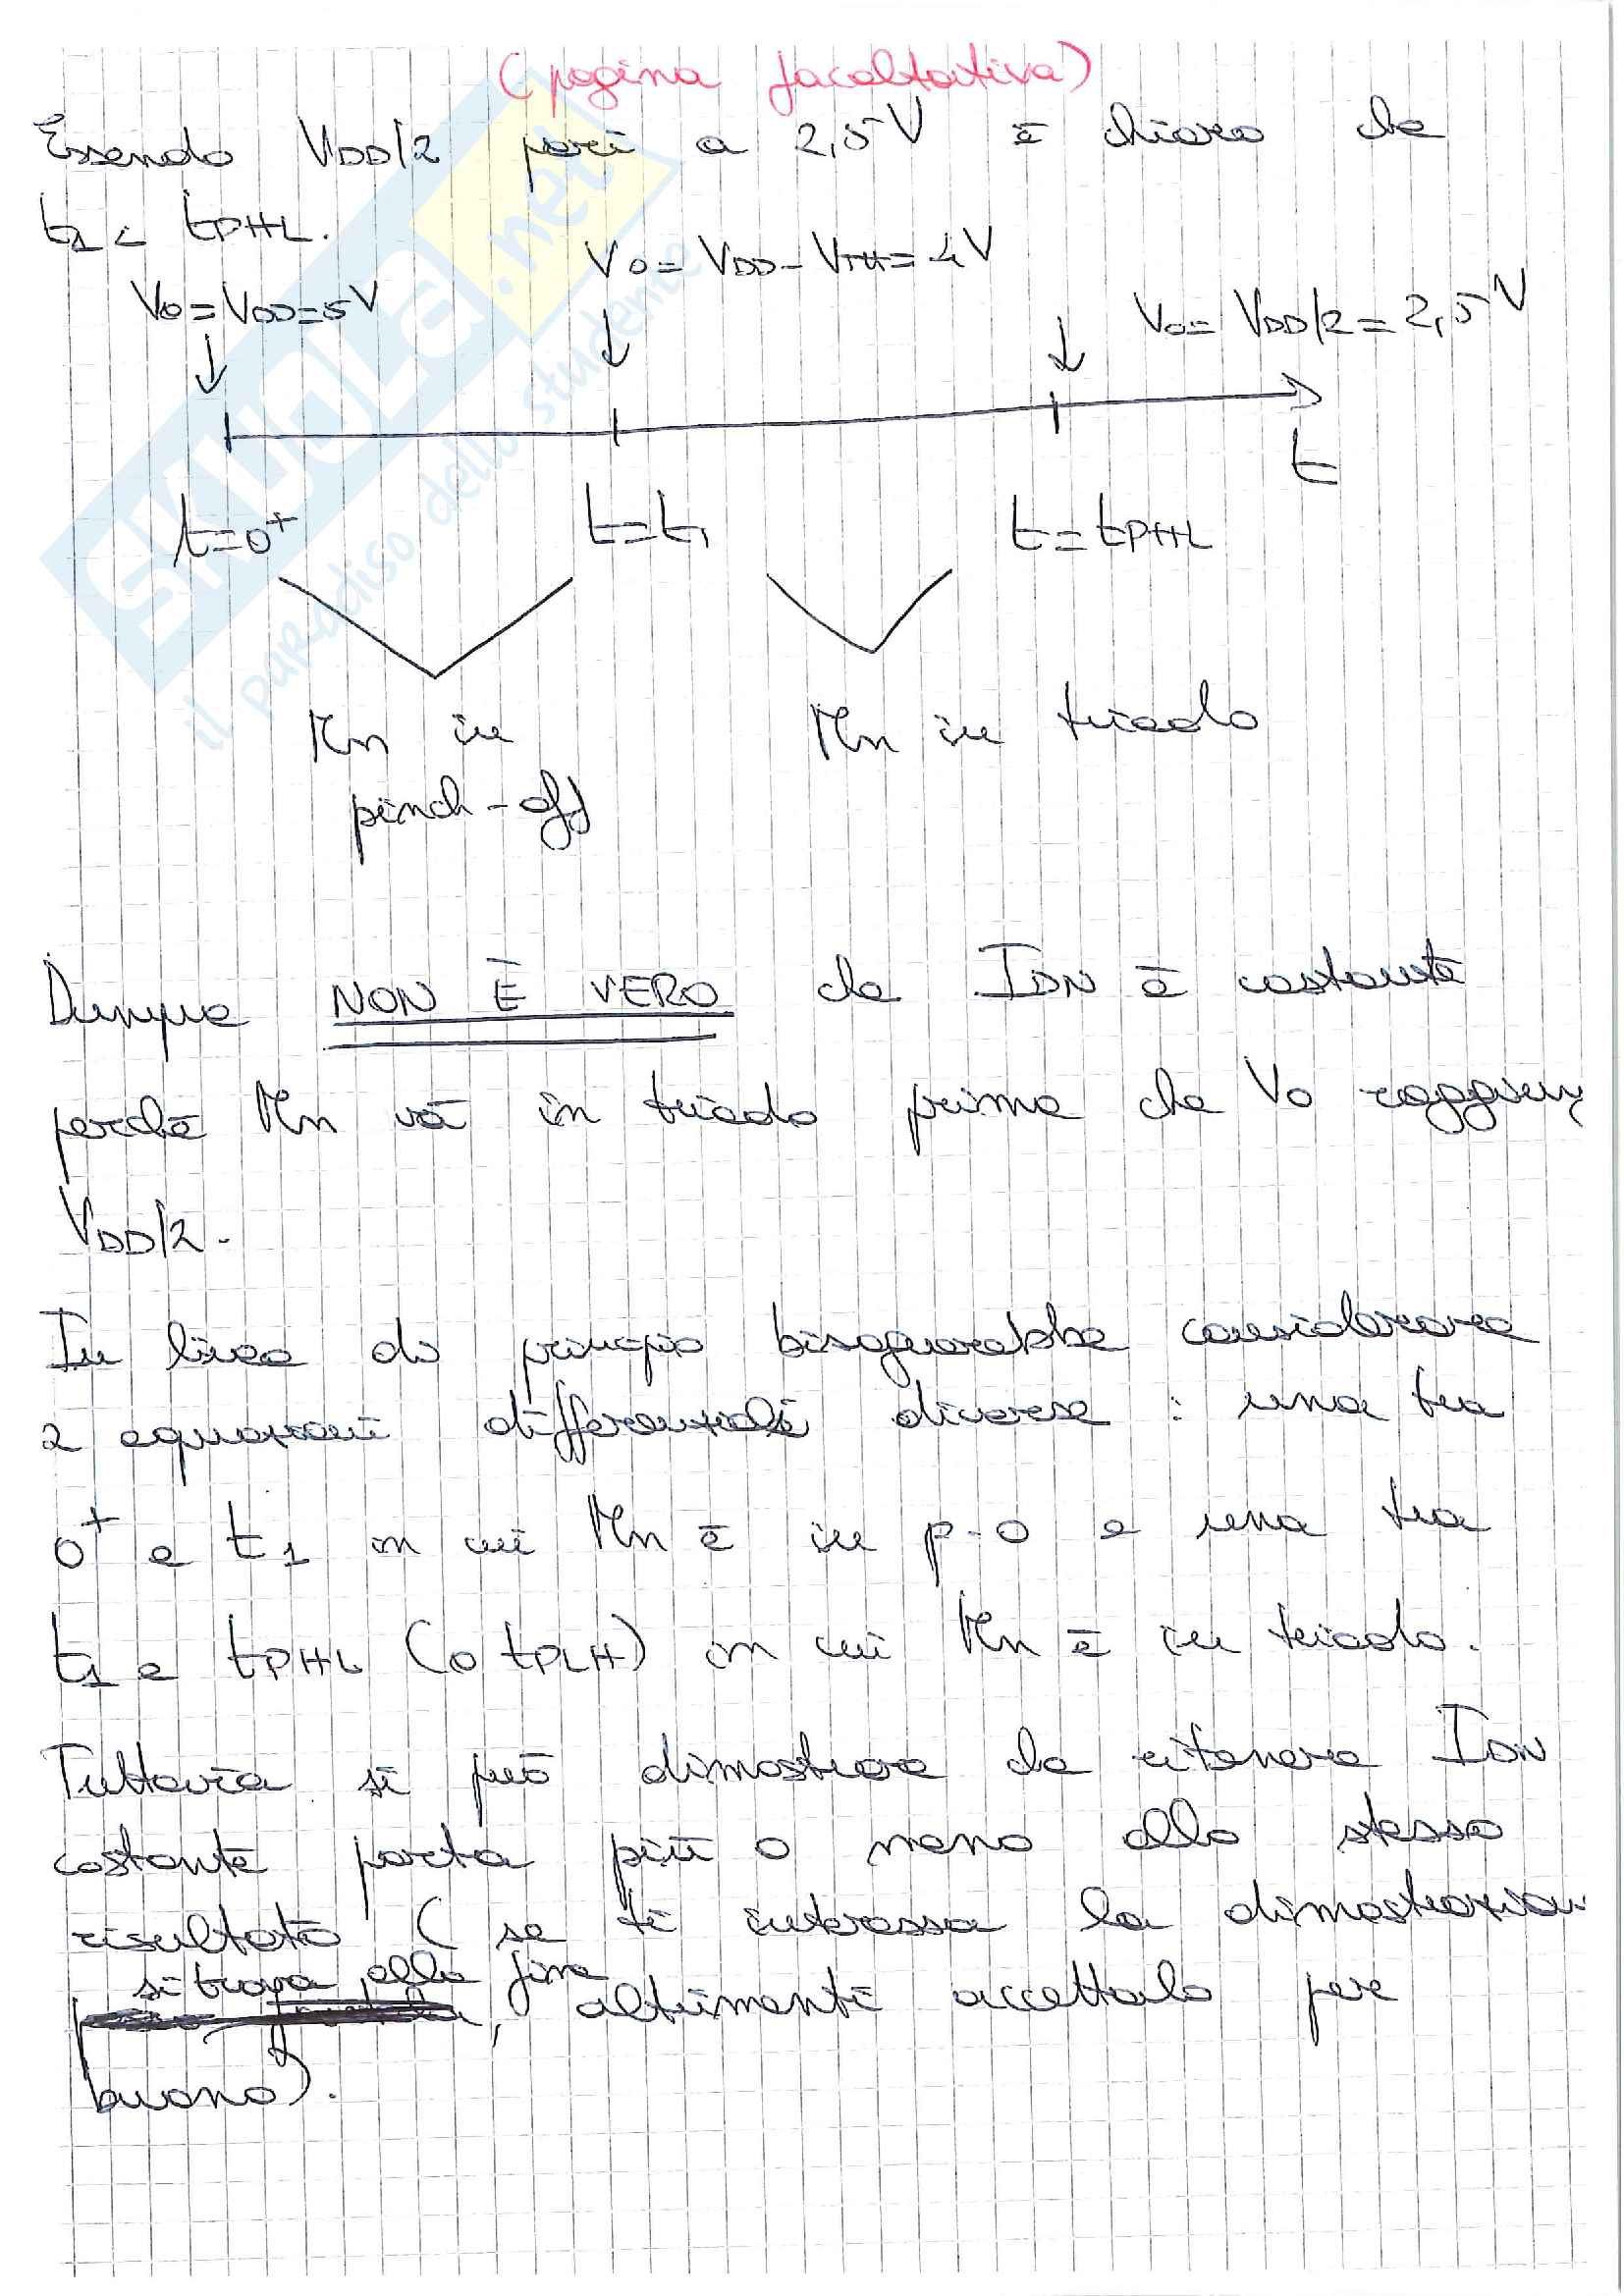 (pagina facoltativa)
Essendo VDD/2 pari a 2,5V è chiaro che
t1 < tPHL.
V0=VDD=5V
V0=VDD-VTH=4V
V0=VDD/2=2,5V
t
t=0+
t=t1
t=tPHL
Mn in
pinch-off
Mn in triodo
Dunque NON È VERO che IDN è costante
perchè Mn và in triodo prima che V0 raggiung
VDD/2.
In linea di principio bisognerebbe considerare
2 equazioni differenziali diverse : una tra
0+ e t1 in cui Mn è in p-o e una tra
t1 e tPHL (o tPLH) in cui Mn è in triodo.
Tuttavia si può dimostrare che ritenere IDN
costante porta più o meno allo stesso
risultato ( se ti interessa la dimostrazion
si trova alla fine, altrimenti accettalo per
buono).
SKUOLA.net
il paradiso dello studente